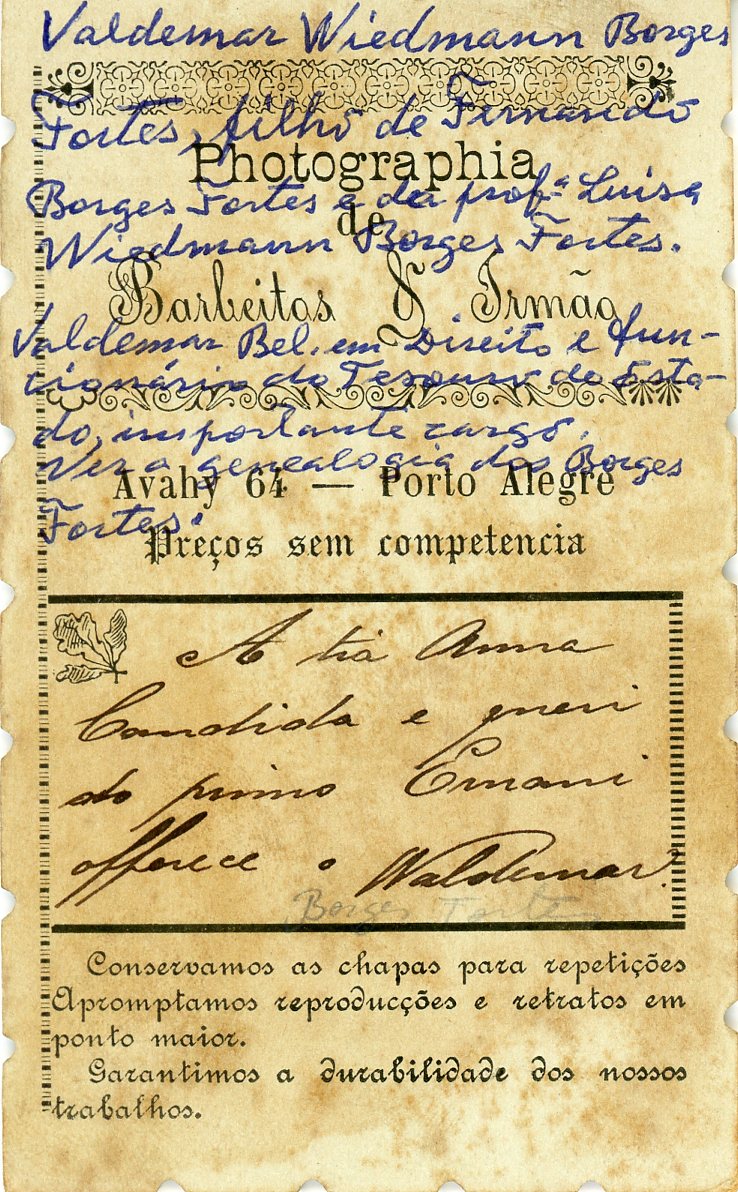 Valdemar Wiedmann Borges
Fortes, filho de Fernando
Photographia
Borges Fortes e da profª. Luisa
de
Wiedmann Borges Fortes.
Barbeitos & Irmão
Valdemar Bel. em Direito e fun-
cionário do Tesouro do Esta-
do, importante cargo.
Ver a genealogia dos Borges
Avahy 64 — Porto Alegre
Fortes.
Preços sem competencia
A tia Anna
Candida e queri
do primo Ernani
offerece o Waldemar.
Borges Fortes
Conservamos as chapas para repetições
Apromptamos reproducções e retratos em
ponto maior.
Garantimos a durabilidade dos nossos
trabalhos.